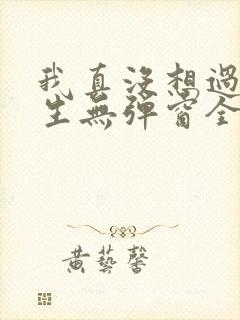 我真没想過
生無彈窗全
黄藝馨